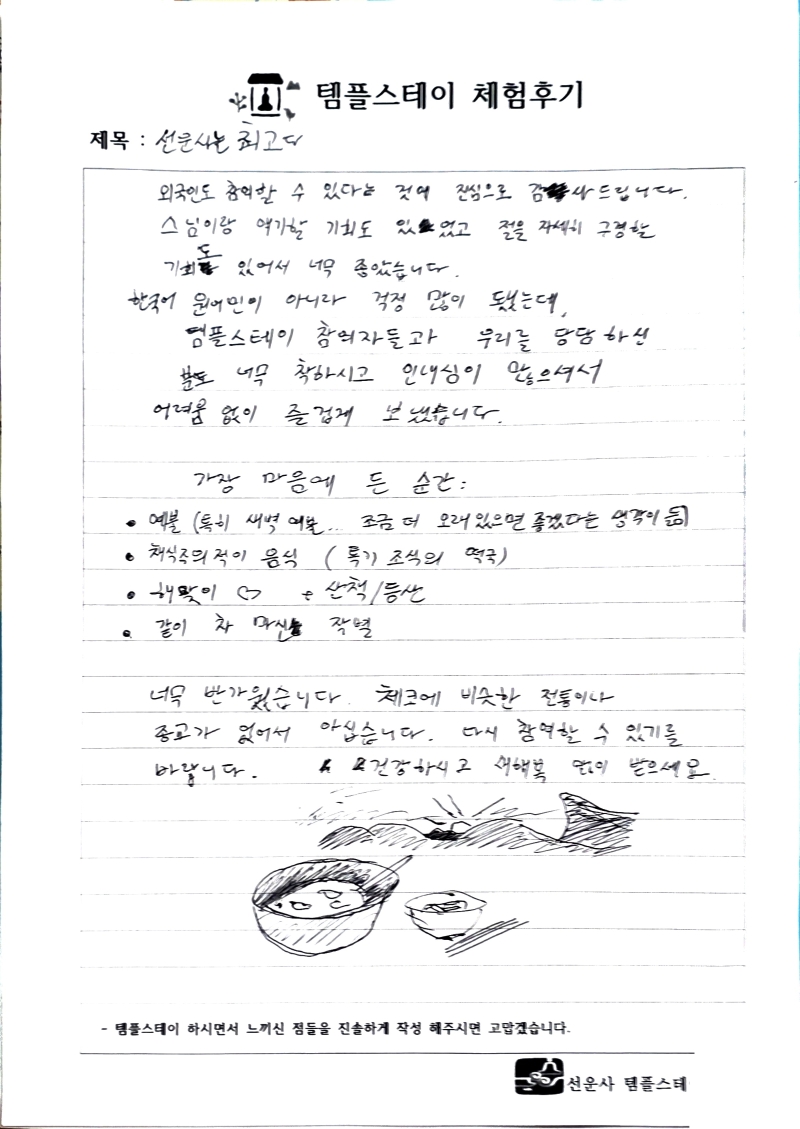 템플스테이 체험후기
제목 : 선운사는 최고다
외국인도 참여할 수 있다는 것에 진심으로 감사드립니다.
스님이랑 얘기할 기회도 있었고 절을 자세히 구경할
기회도 있어서 너무 좋았습니다.
한국어 원어민이 아니라 걱정 많이 됐는데,
템플스테이 참여자들과 우리를 담당하신
분도 너무 착하시고 인내심이 많으셔서
어려움 없이 즐겁게 보냈습니다.
가장 마음에 든 순간:
• 예불 (특히 새벽 예불... 조금 더 오래 있으면 좋겠다는 생각이 듦)
• 채식주의적이 음식 (특기 조식의 떡국)
• 해맞이 ♡ + 산책/등산
• 같이 차 마신 작별
너무 반가웠습니다. 체코에 비슷한 전통이나
종교가 없어서 아쉽습니다. 다시 참여할 수 있기를
바랍니다. 건강하시고 새해복 많이 받으세요.
- 템플스테이 하시면서 느끼신 점들을 진솔하게 작성 해주시면 고맙겠습니다.
선운사 템플스테